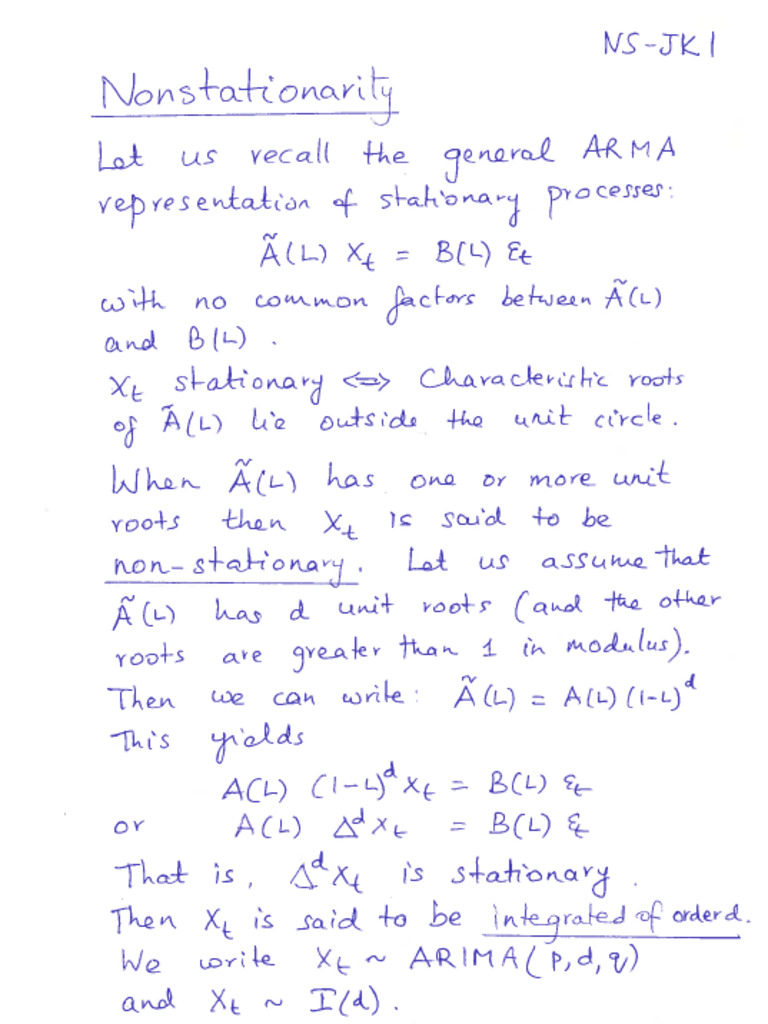 NS-JK1
Nonstationarity
Let us recall the general ARMA
representation of stationary processes:
Ã(L) Xt = B(L) εt
with no common factors between Ã(L)
and B(L).
Xt stationary ⇔ Characteristic roots
of Ã(L) lie outside the unit circle.
When Ã(L) has one or more unit
roots then Xt is said to be
non-stationary. Let us assume that
Ã(L) has d unit roots (and the other
roots are greater than 1 in modulus).
Then we can write: Ã(L) = A(L) (1-L)^d
This yields
A(L) (1-L)^d Xt = B(L) εt
or A(L) Δ^d Xt = B(L) εt
That is, Δ^d Xt is stationary.
Then Xt is said to be integrated of order d.
We write Xt ~ ARIMA(p,d,q)
and Xt ~ I(d).